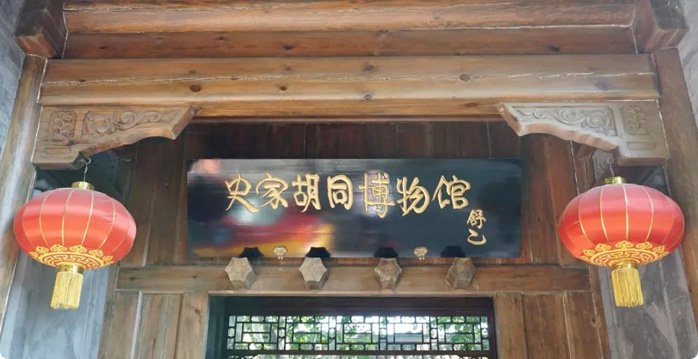 史家胡同博物馆
舒乙